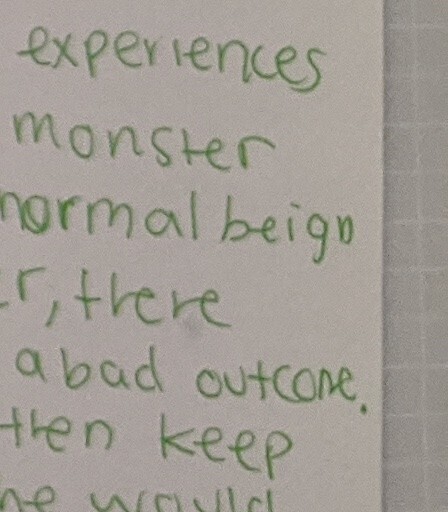 experiences
monster
normal beign
r, there
a bad outcome.
then keep
he would